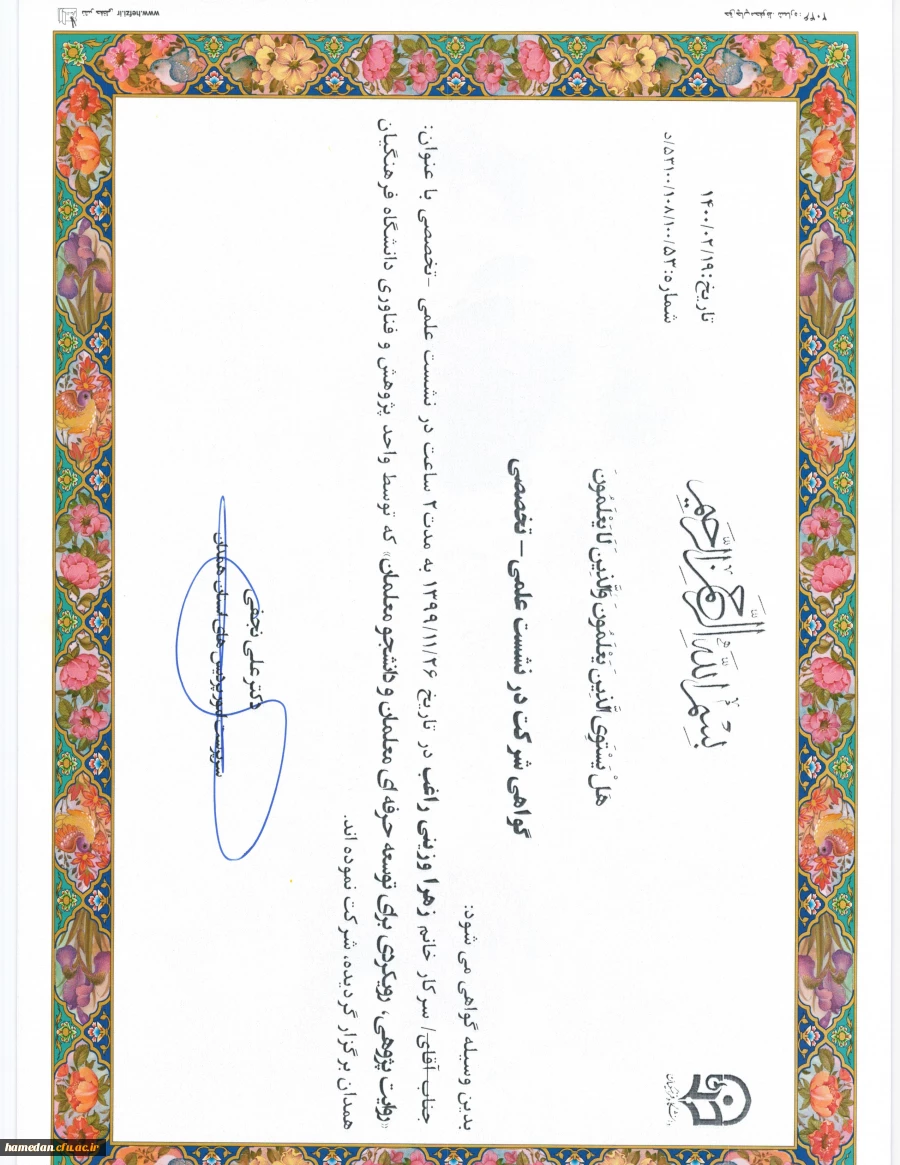 بسم الله الرحمن الرحیم
دانشگاه فرهنگیان
تاریخ: ۱۴۰۰/۰۲/۱۹
شماره: ۵۳۱۰۰/۱۰۸/۱۰۰/۵۳/د
هَلْ يَسْتَوِی الَّذِينَ يَعْلَمُونَ وَالَّذِينَ لَايَعْلَمُونَ
گواهی شرکت در نشست علمی - تخصصی
بدین وسیله گواهی می شود:
جناب آقای/ سرکار خانم زهرا وزینی راغب در تاریخ ۱۳۹۹/۱۱/۲۶ به مدت ۲ ساعت در نشست علمی -تخصصی با عنوان:
«روایت پژوهی، رویکردی برای توسعه حرفه ای معلمان و دانشجو معلمان» که توسط واحد پژوهش و فناوری دانشگاه فرهنگیان
همدان برگزار گردیده، شرکت نموده اند.
دکتر علی نجفی
سرپرست امور پردیس های استان همدان
www.hefzi.ir
hamedan.cfu.ac.ir